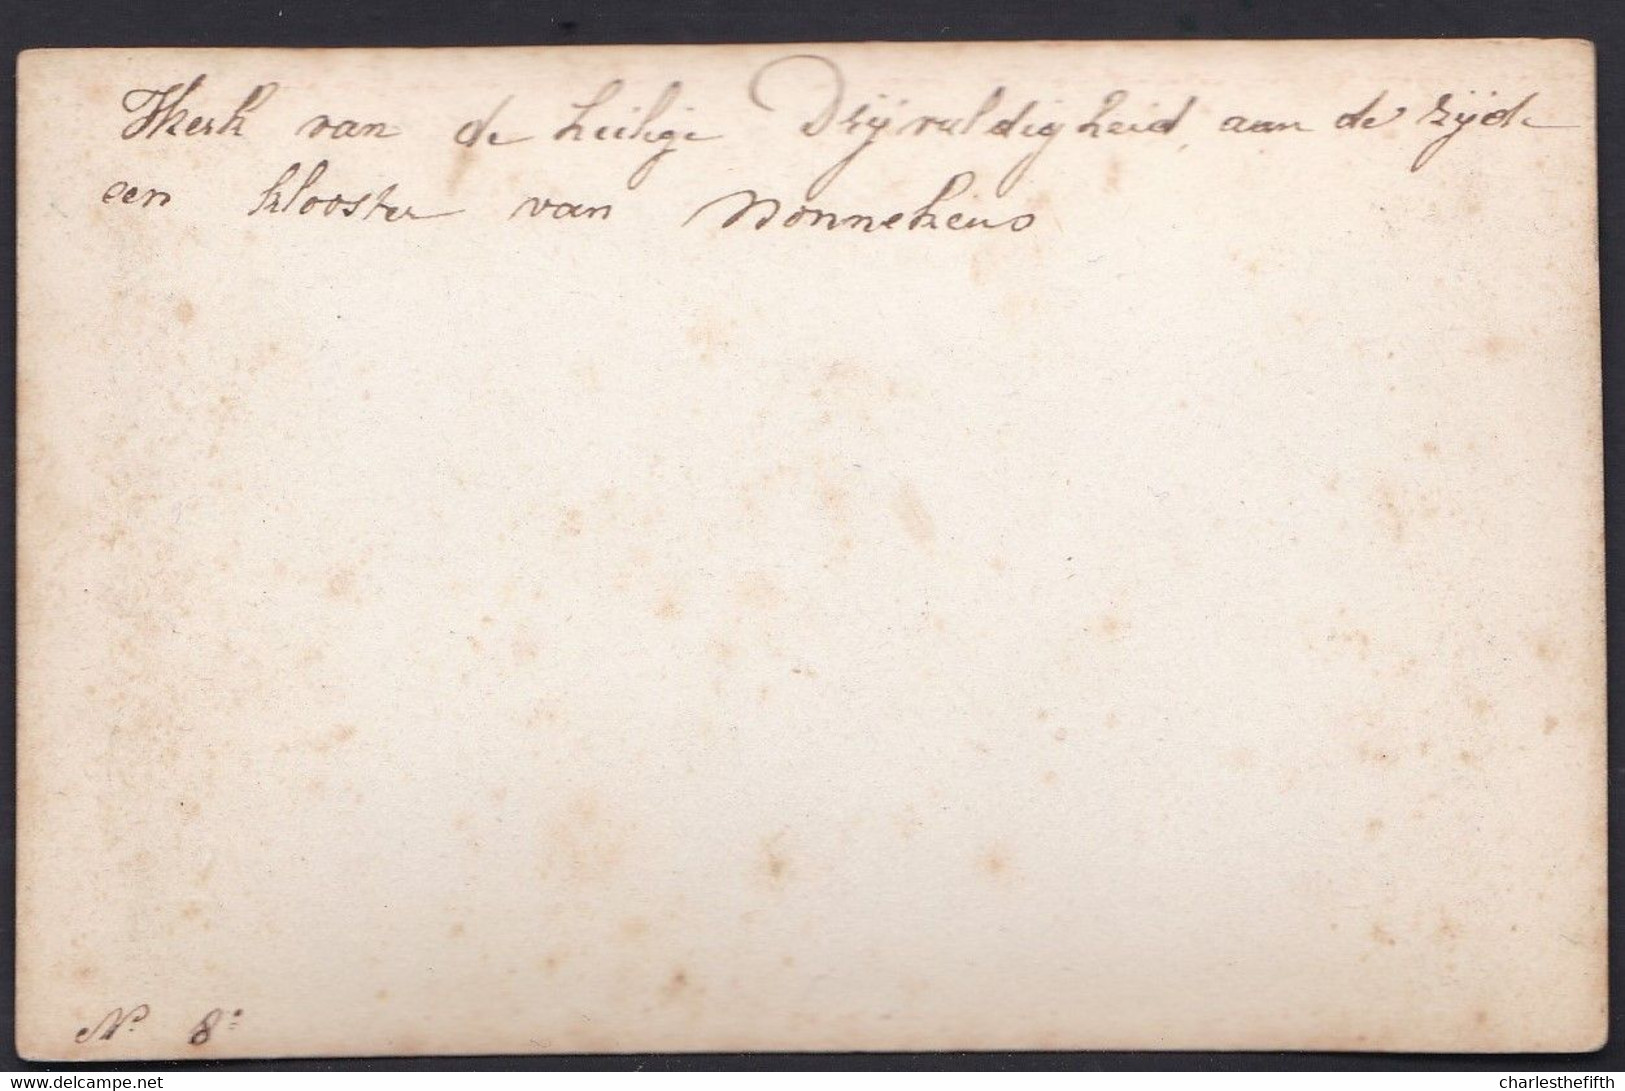 Kerk van de heilige Drijvuldigheid, aan de zijde
een klooster van nonnekens
N° 8:
© www.delcampe.net
charlesthefifth